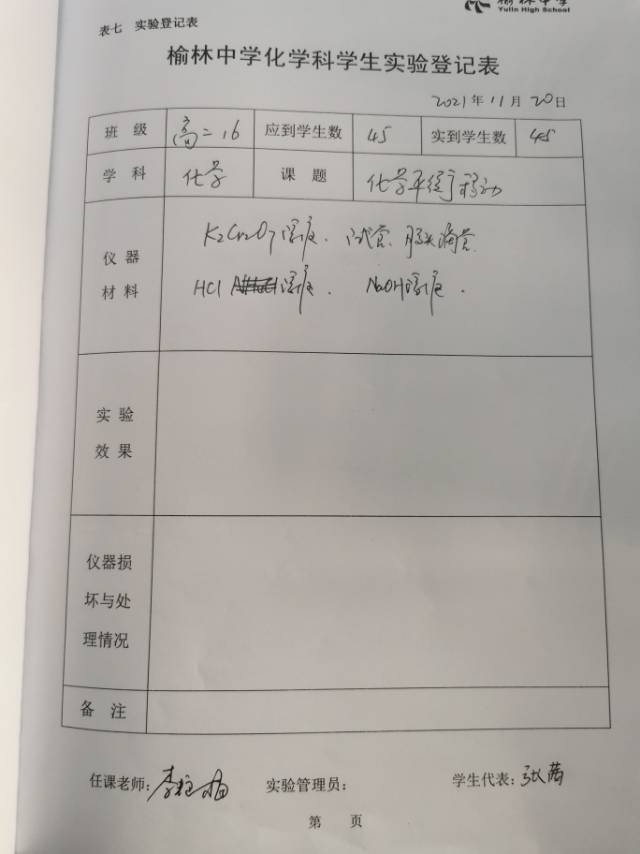 榆林中学
Yulin High School
表七 实验登记表
榆林中学化学科学生实验登记表
2021年11月20日
班级 高二16 应到学生数 45 实到学生数 45
学科 化学 课题 化学平衡移动
仪器 K2Cr2O7溶液. 试管. 胶头滴管
材料 HCl 溶液. NaOH溶液.
实验
效果
仪器损
坏与处
理情况
备注
任课老师: 李 实验管理员: 学生代表: 张茜
第 页